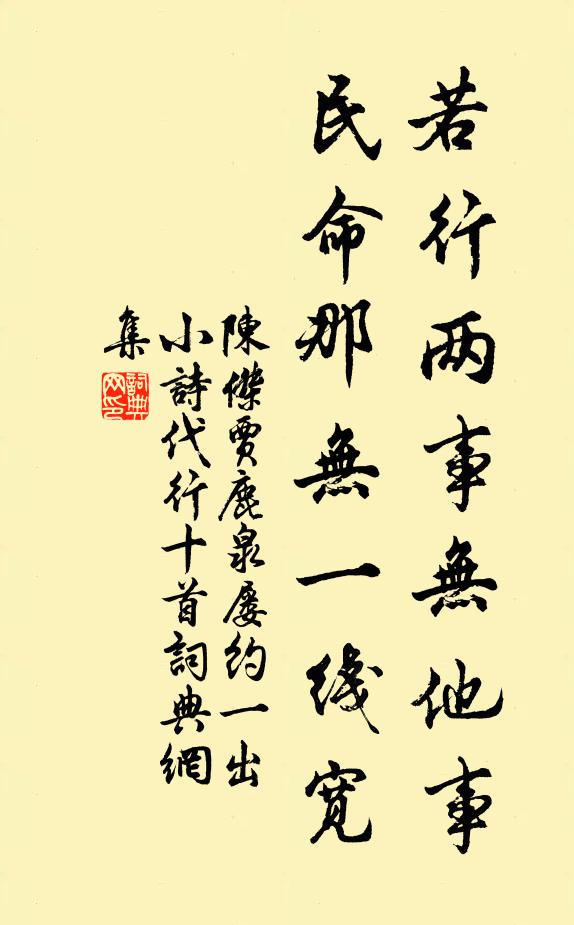 若行两事無他事
民命那無一线寬
陳傑賈鹿泉屡約一出
小詩代行十首詞典網
集
詞典网印